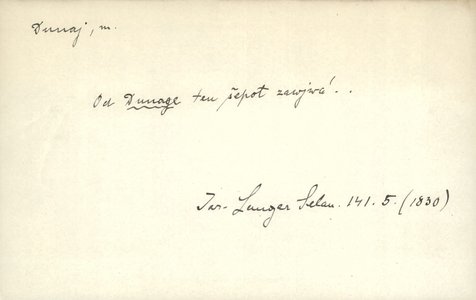 Dunaj, m.
Od Dunage ten šepot zawjwá . .
Jar. Langer Selan. 141. 5. (1830)